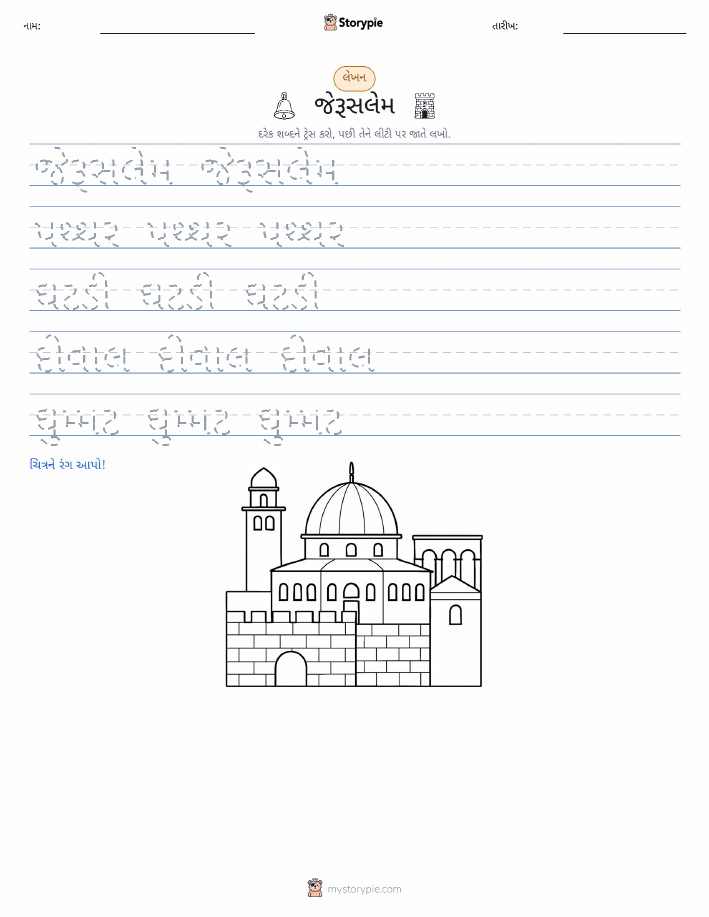 નામ:
Storypie
તારીખ:
લેખન
જેરૂસલેમ
દરેક શબ્દને ટ્રેસ કરો, પછી તેને લીટી પર જાતે લખો.
જેરૂસલેમ જેરૂસલેમ
પથ્થર પથ્થર પથ્થર
ઘંટડી ઘંટડી ઘંટડી
દીવાલ દીવાલ દીવાલ
ઘુમ્મટ ઘુમ્મટ ઘુમ્મટ
ચિત્રને રંગ આપો!
mystorypie.com